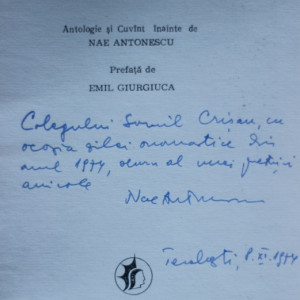 Antologie și Cuvînt înainte de
NAE ANTONESCU
Prefață de
EMIL GIURGIUCA
Colegului Crișan, cu
ocazia zilei onomastice din
anul 1977, semn al unei prețuiri
amicale
Nae Antonescu
Terebești, 8.XI.1977